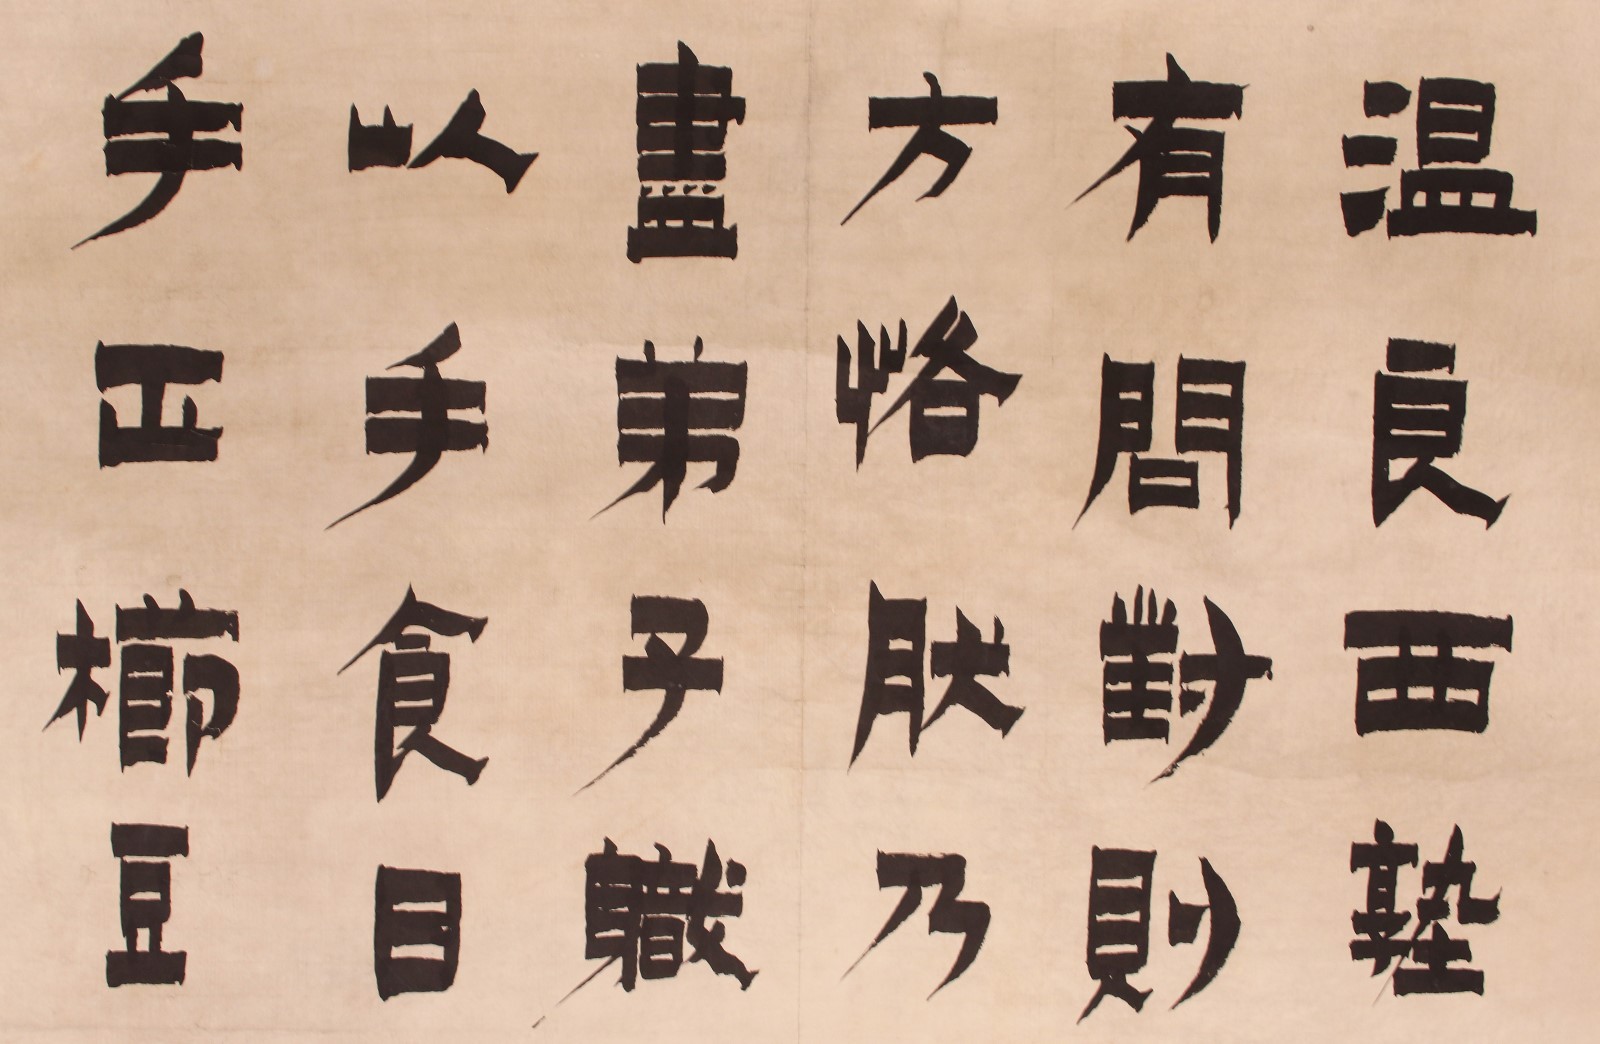 温良西塾
有問對則
方恪肰乃
盡弟子軄
以手食目
手正櫛豆